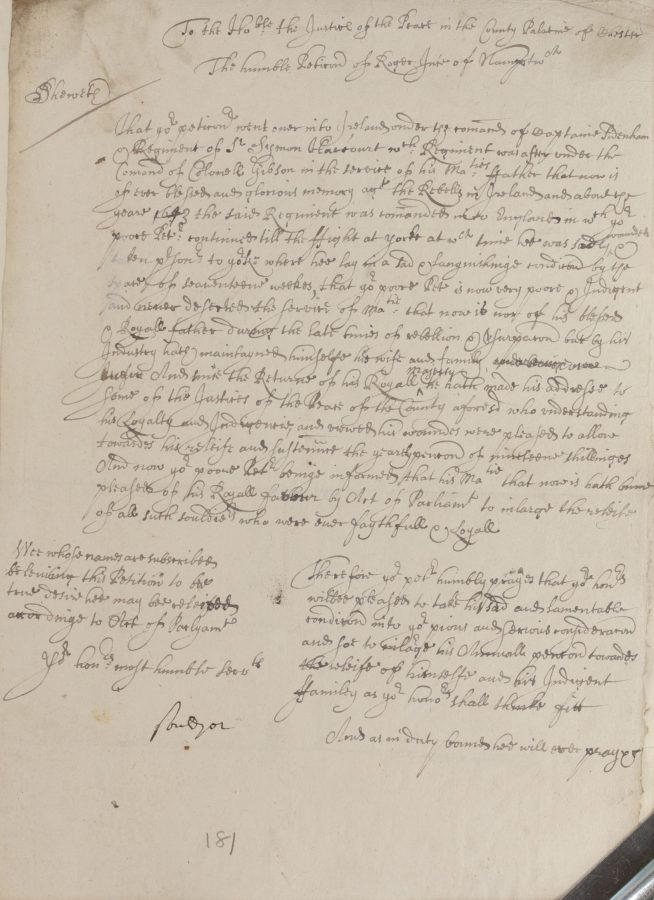 To the Hoble the Justices of the Peace in the County Palatine of Chester
The humble Peticon of Roger Ince of Namptwch
Sheweth
That yor peticonr went over into Ireland under the comand of Captaine
& Regiment of Sr Symon Harcourt wch Regiment was after under the
Comand of Colonell Gibson in the service of his Maties ffather that now is
of ever blessed and glorious memory agt the Rebells in Ireland and about the
yeare 1643 the said Regiment was comanded into England in wch yor
poore Petr continued till the ffight at Yorke at wch time hee was sadly wounded &
taken prisoner to where hee lay in a sad & languishinge condicon by the
space of seaventeene weekes, that yor poore Petr is now very poore & Indigent
and never deserted the service of Matie that now is nor of his blessed
& Royall father during the late times of rebellion & Usurpacon but by his
Industry hath maintayned himselfe his wife and family
And since the Returne of his Royall Majesty he hath made his addresse to
some of the Justices of the Peace of the County aforesd who understanding
his Loyalty and Indigencie and viewed his woundes were pleased to allow
towardes his releife and sustenance the yearly pencon of nineteene shillinges
And now yor poore Petr beinge informed that his Matie that now is hath beene
pleased of his Royall favour by Act of Parliamt to inlarge the releife
of all such souldiers who were ever faythfull & Loyall
Wee whose names are subscribed
beleiving this Peticon to be
true desire hee may bee releived
accordinge to Act of Parlyamt
Yor honrs most humble servts
Therefore yor petr humbly prayes that yor honrs
wilbee pleased to take his sad and lamentable
condicon into yor pious and serious consideracon
and soe to inlarge his Annuall pencon towardes
the releife of himselfe and his Indigent
ffamiley as yor honors shall thinke fitt
And as in duty bound hee will ever pray &c
181